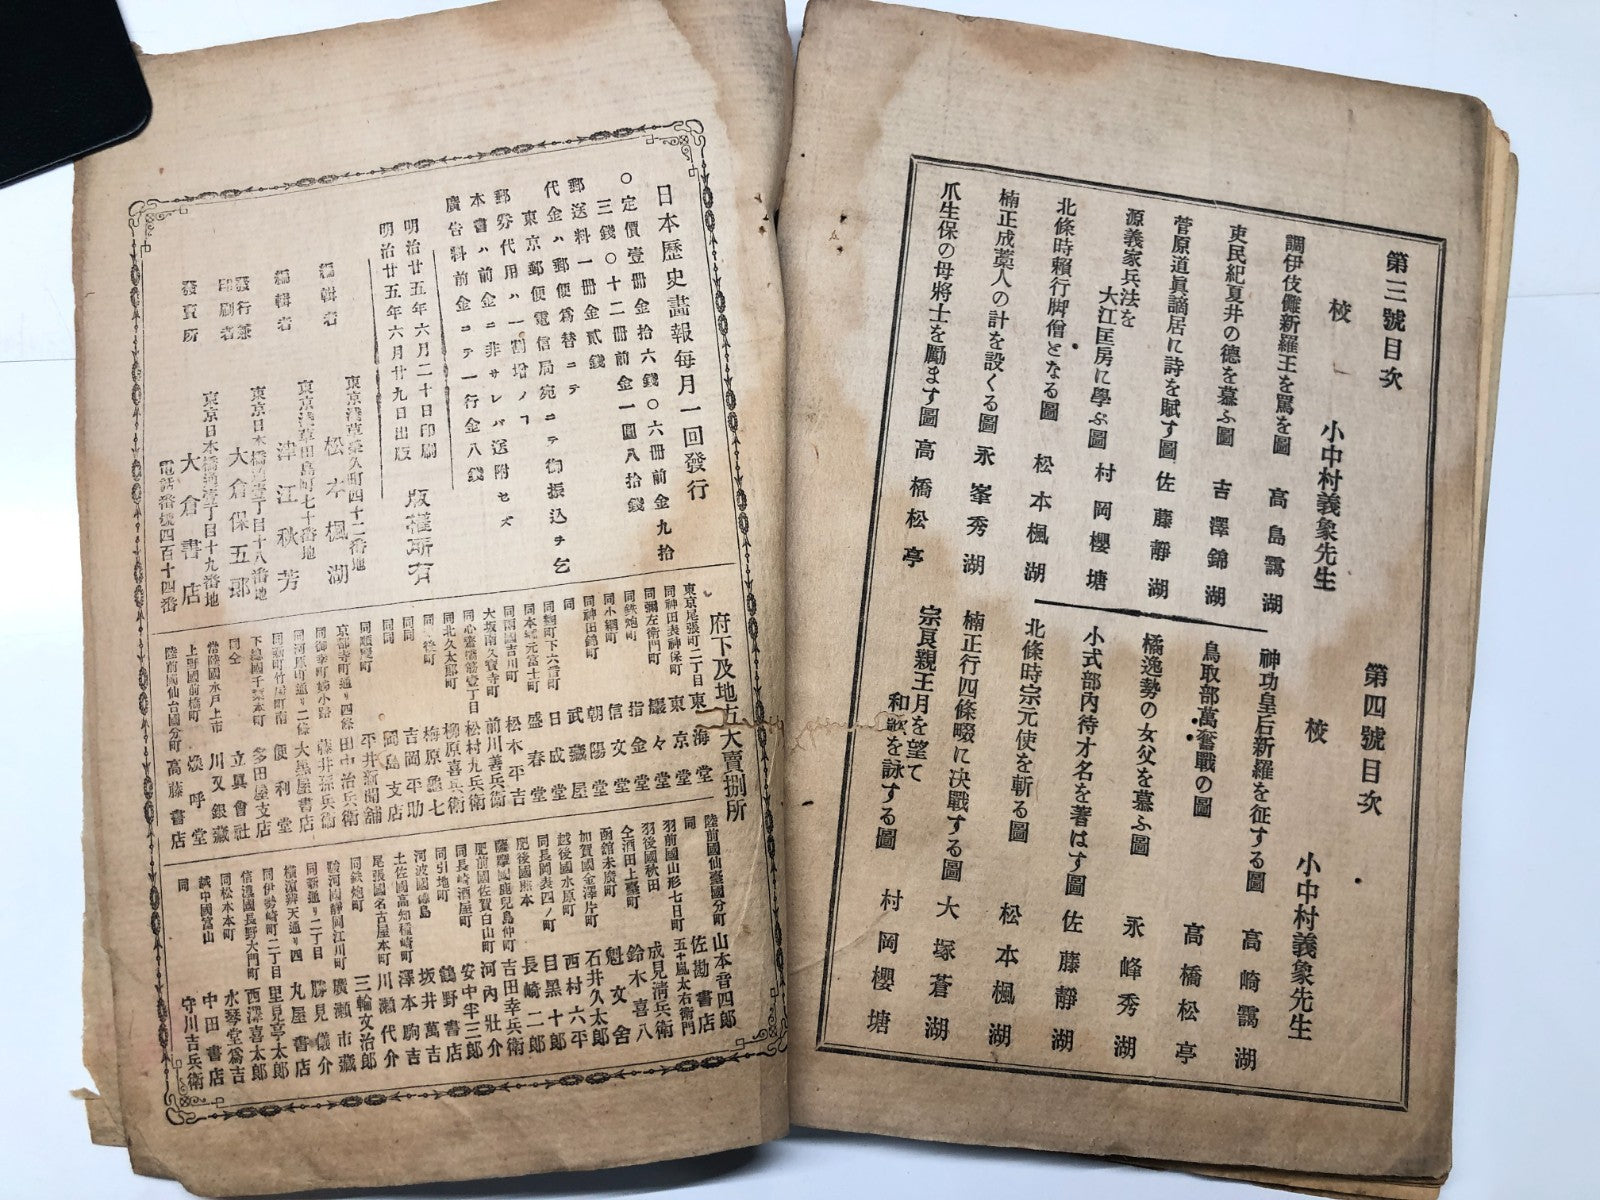 第三號目次
校 小中村義象先生
調伊伎儺新羅王を罵る圖 高島靄湖
吏民紀夏井の德を慕ふ圖 吉澤錦湖
菅原道眞謫居に詩を賦す圖 佐藤靜湖
源義家兵法を
大江匡房に學ぶ圖 村岡櫻塘
北條時賴行脚僧となる圖 松本楓湖
楠正成藁人の計を設くる圖 永峯秀湖
爪生保の母將士を勵ます圖 高橋松亭
第四號目次
校 小中村義象先生
神功皇后新羅を征する圖 高崎靄湖
鳥取部萬奮戰の圖 高橋松亭
橘逸勢の女父を慕ふ圖 永峰秀湖
小式部内待才名を著はす圖 佐藤靜湖
北條時宗元使を斬る圖 松本楓湖
楠正行四條畷に决戰する圖 大塚蒼湖
宗良親王月を望て
和歌を詠する圖 村岡櫻塘
日本歷史畫報每月一回發行
○定價壹册金拾六錢○六册前金九拾
三錢○十二册前金一圓八拾錢
郵送料一册金貳錢
代金ハ郵便爲替ニテ
東京郵便電信局宛ニテ御振込ヲ乞
郵券代用ハ一割增ノ
本書ハ前金ニ非サレバ送附セズ
廣告料前金ニテ一行金八錢
明治廿五年六月二十日印刷
明治廿五年六月廿九日出版
版權所有
編輯者 松本楓湖
編輯者 東京淺草田島町七十番地
津江秋芳
發行兼
印刷者 大倉保五郎
發賣所 東京日本橋通壹丁目十九番地
大倉書店
電話番號四百十四番
府下及地方大賣捌所
東京尾張町二丁目 東海堂
同神田表神保町 東京堂
同彌左衛門町 巖々堂
同鉄炮町 指金堂
同小網町 信文堂
同神田鍋町 朝陽堂
同 武藏屋
同麹町下六番町 日成堂
同本鄕元富士町 盛春堂
同兩國吉川町 松木平吉
大坂南久寶寺町 前川善兵衛
同心齋橋筋壹丁目 松村九兵衛
同北久太郎町 柳原喜兵衛
梅原龜七
同 吉岡平助
同 岡島支店
同順慶町 平井新聞舗
京都寺町通り四條 田中治兵衛
同御幸町姊小路 藤井孫兵衛
同河原町通二條 大黒屋書店
同新町竹屋町南 便利堂
下總國千葉本町 多田屋支店
同仝 立眞會社
常陸國水戸上市 川又銀藏
上野國前橋町 煥呼堂
陸前國仙台國分町 高藤書店
陸前國仙臺國分町 山本音四郎
同 佐勘書店
羽前國山形七日町 五十嵐太右衛門
羽後國秋田 成見淸兵衛
仝酒田上臺町 鈴木喜八
函館末廣町 魁文舍
加賀國金澤片町 石井久太郎
越後國水原町 西村六平
同長岡表四ノ町 目黒十郎
肥後國熊本 長崎二郎
薩摩國鹿兒島仲町 吉田幸兵衛
肥前國佐賀白山町 河內壯介
同長崎酒屋町 安中半三郎
同引地町 鶴野書店
阿波國德島 坂井萬吉
土佐國高知種崎町 澤本駒吉
尾張國名古屋本町 川瀬代介
同鉄炮町 三輪文治郎
駿河國靜岡江川町 廣瀬市藏
同新通り二丁目 勝見儀介
横濱辨天通り四 丸屋書店
同伊勢崎町二丁目 里見亭太郎
信濃國長野大門町 西澤喜太郎
同松本本町 水琴堂爲吉
越中國富山 中田書店
同 守川吉兵衛